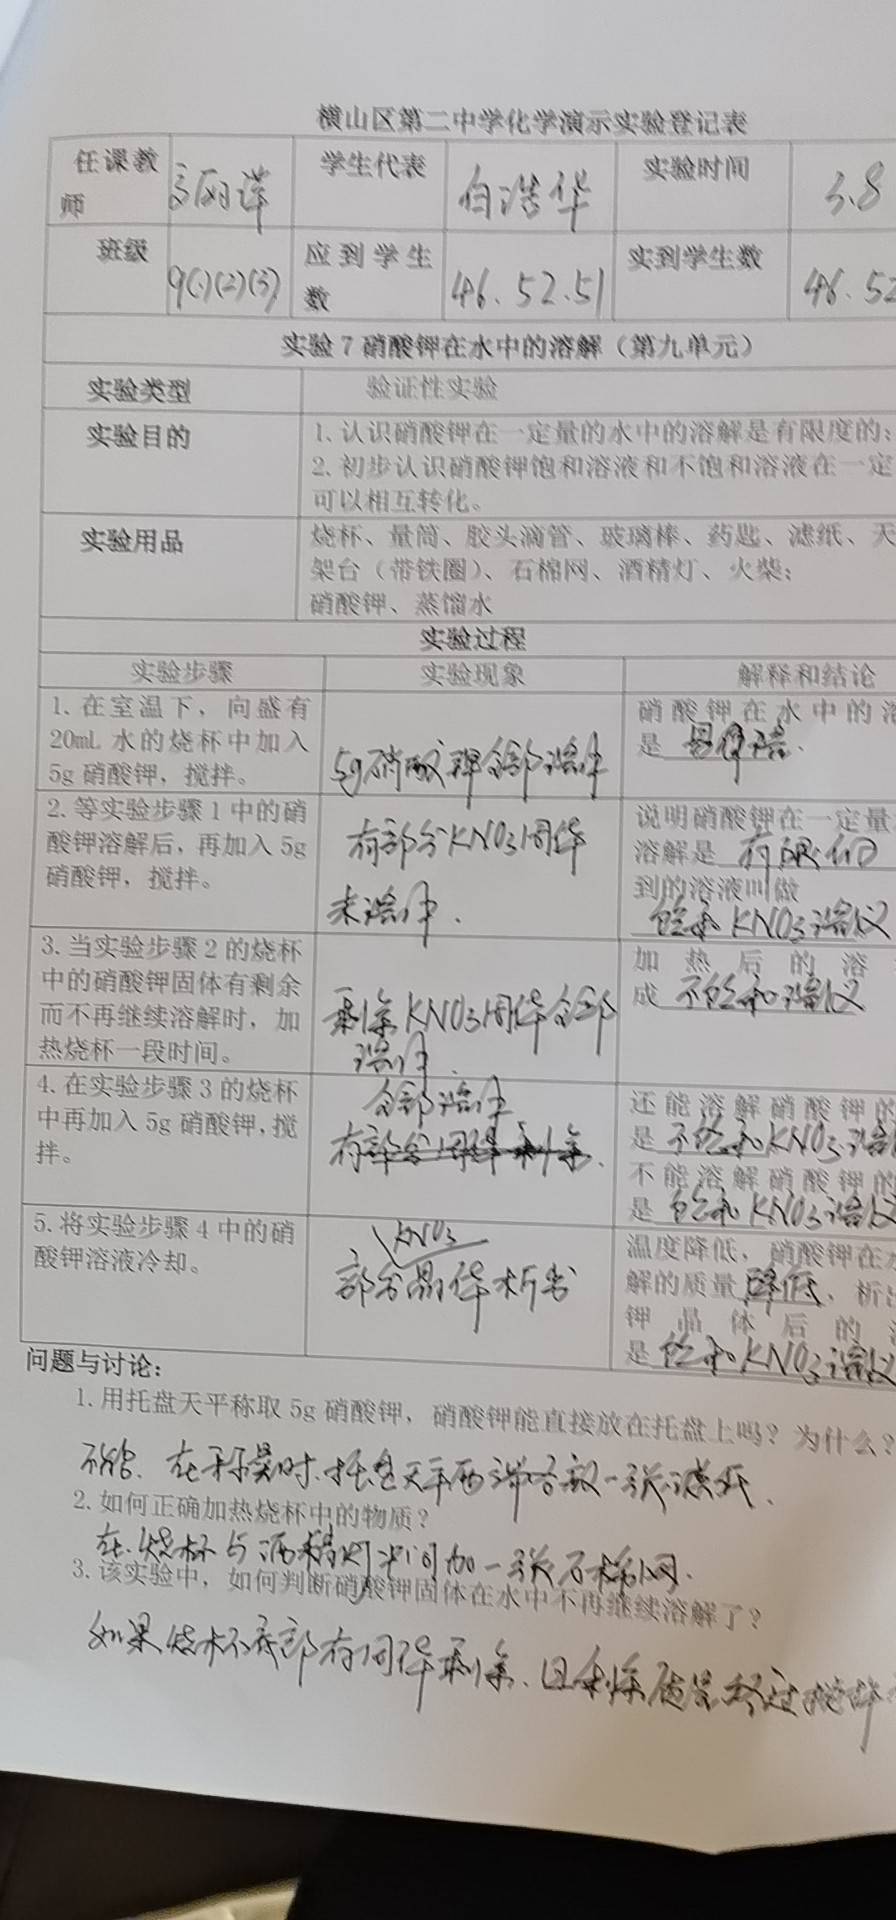 横山区第二中学化学演示实验登记表
任课教师 学生代表 白浩华 实验时间 3.8
班级 9(1)(2)(3) 应到学生数 46.52.51 实到学生数 46.52
实验7 硝酸钾在水中的溶解（第九单元）
实验类型 验证性实验
实验目的 1.认识硝酸钾在一定量的水中的溶解是有限度的；
2.初步认识硝酸钾饱和溶液和不饱和溶液在一定
可以相互转化。
实验用品 烧杯、量筒、胶头滴管、玻璃棒、药匙、滤纸、天
架台（带铁圈）、石棉网、酒精灯、火柴；
硝酸钾、蒸馏水
实验过程
实验步骤 实验现象 解释和结论
1.在室温下，向盛有
20mL 水的烧杯中加入
5g 硝酸钾，搅拌。
5g硝酸钾全部溶解
硝酸钾在水中的溶
是
2.等实验步骤1中的硝
酸钾溶解后，再加入5g
硝酸钾，搅拌。
有部分KNO3固体
未溶解.
说明硝酸钾在一定量
溶解是 有限的
到的溶液叫做
饱和KNO3溶液
3.当实验步骤2的烧杯
中的硝酸钾固体有剩余
而不再继续溶解时，加
热烧杯一段时间。
剩余KNO3固体全部
溶解.
加热后的溶
成 不饱和溶液
4.在实验步骤3的烧杯
中再加入5g硝酸钾，搅
拌。
全部溶解
有部分固体剩余.
还能溶解硝酸钾的
是 不饱和KNO3溶
不能溶解硝酸钾的
是 饱和KNO3溶液
5.将实验步骤4中的硝
酸钾溶液冷却。
KNO3
部分晶体析出
温度降低，硝酸钾在水
解的质量 降低，析出
钾晶体后的溶
是 饱和KNO3溶液
问题与讨论：
1.用托盘天平称取5g硝酸钾，硝酸钾能直接放在托盘上吗？为什么？
不能.在称量时.托盘天平两端各放一张滤纸.
2.如何正确加热烧杯中的物质？
在烧杯与酒精灯中间加一张石棉网.
3.该实验中，如何判断硝酸钾固体在水中不再继续溶解了？
如果烧杯底部有固体剩余.且剩余质量经过搅拌